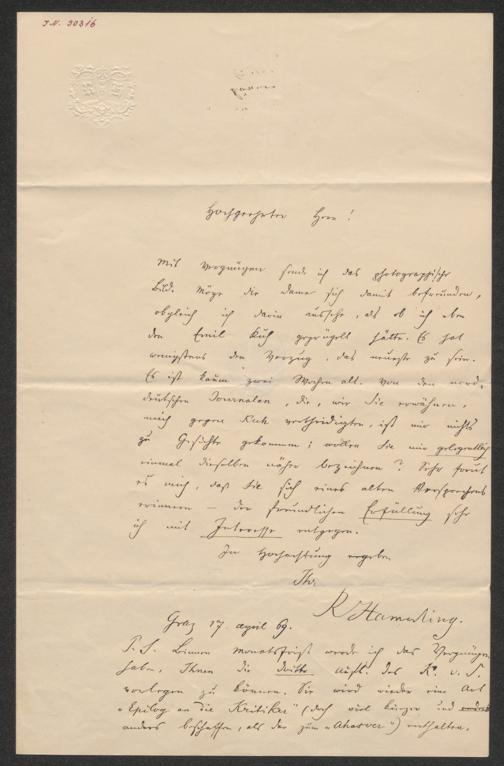 J.N. 30316
Hochgeehrter Herr!
Mit Vergnügen sende ich das photographische
Bild. Möge die Dame sich damit befreunden,
obgleich ich darin aussehe, als ob ich eben
den Emil Kuh geprügelt hätte. Es hat
wenigstens den Vorzug, das neueste zu sein.
Es ist kaum zwei Wochen alt. Von den nord-
deutschen Journalen, die, wie Sie erwähnen,
mich gegen Kuh vertheidigten, ist mir nichts
zu Gesichte gekommen; wollen Sie mir gelegentlich
einmal dieselben näher bezeichnen? Sehr freut
es mich, daß Sie sich eines alten Versprechens
erinnern — der freundlichen Erfüllung sehe
ich mit Interesse entgegen.
In Hochachtung ergeben
Ihr
R Hamerling.
Graz 17. April 69.
P.S. Binnen Monatsfrist werde ich das Vergnügen
haben, Ihnen die dritte Aufl. des K. v. S.
vorlegen zu können. Sie wird wieder eine Art
"Epilog an die Kritiker" (doch viel kürzer und
anders beschaffen, als der zum "Ahasver") enthalten.